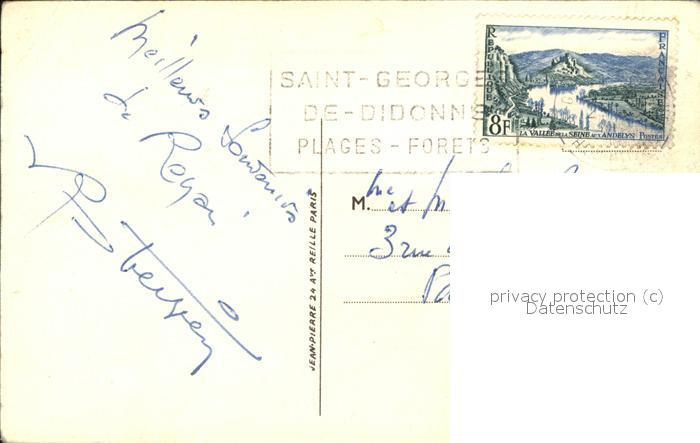 Meilleurs Souvenirs
de Royan
SAINT-GEORGES
DE-DIDONNE
PLAGES - FORETS
REPUBLIQUE
FRANCAISE
8F
LA VALLÉE DE LA SEINE AUX ANDELYS POSTES
JEAN-PIERRE 24 AVE REILLE PARIS
M. Me et M
3 rue
Pa
privacy protection (c)
Datenschutz